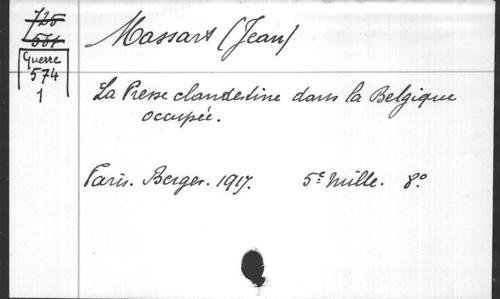 725
561
Guerre
574
1
Massart (Jean)
La Presse clandestine dans la Belgique
occupée.
Paris. Berger. 1917. 5e mille. 8°